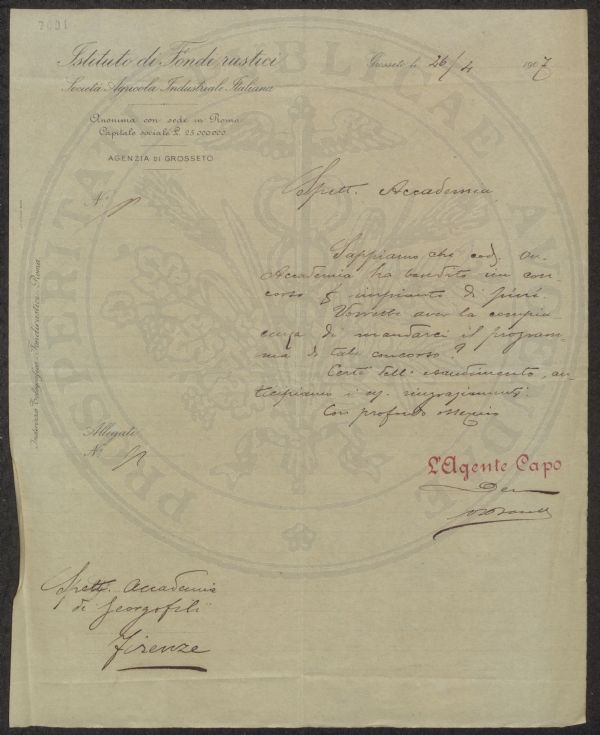 7091
Istituto di Fondi rustici
Società Agricola Industriale Italiana
Anonima con sede in Roma
Capitale sociale L. 25 000 000
AGENZIA DI GROSSETO
Grosseto li 26/4 1907
N.
Spett. Accademia
Sappiamo che cod. On.
Accademia ha bandito un con-
corso impianto di pini
Vorrebbe aver la compia-
cenza di mandarci il program-
ma di tale concorso?
Certi dell' esaudimento, an-
ticipiamo i ringraziamenti.
Con profondo ossequio
Indirizzo Telegrafico: Fondirustici-Roma
Allegati
N.
L'Agente Capo
Spett. Accademia
di Georgofili
Firenze
PROSPERITATI PUBLICAE AUGENDAE